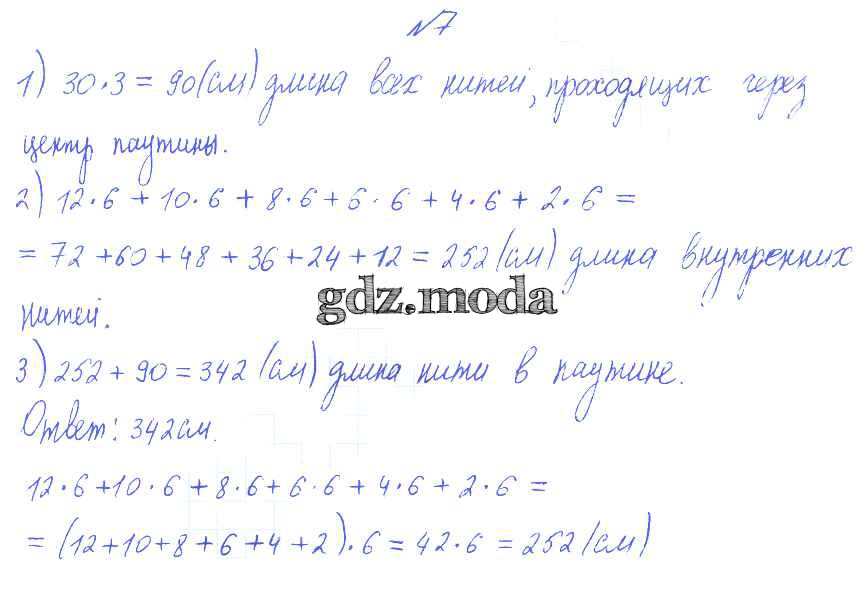 №7
1) 30·3 = 90(см) длина всех нитей, проходящих через
центр паутины.
2) 12·6 + 10·6 + 8·6 + 6·6 + 4·6 + 2·6 =
= 72 + 60 + 48 + 36 + 24 + 12 = 252 (см) длина внутренних
gdz.moda
нитей.
3) 252 + 90 = 342 (см) длина нити в паутине.
Ответ: 342см.
12·6 + 10·6 + 8·6 + 6·6 + 4·6 + 2·6 =
= (12+10+8+6+4+2)·6 = 42·6 = 252 (см)